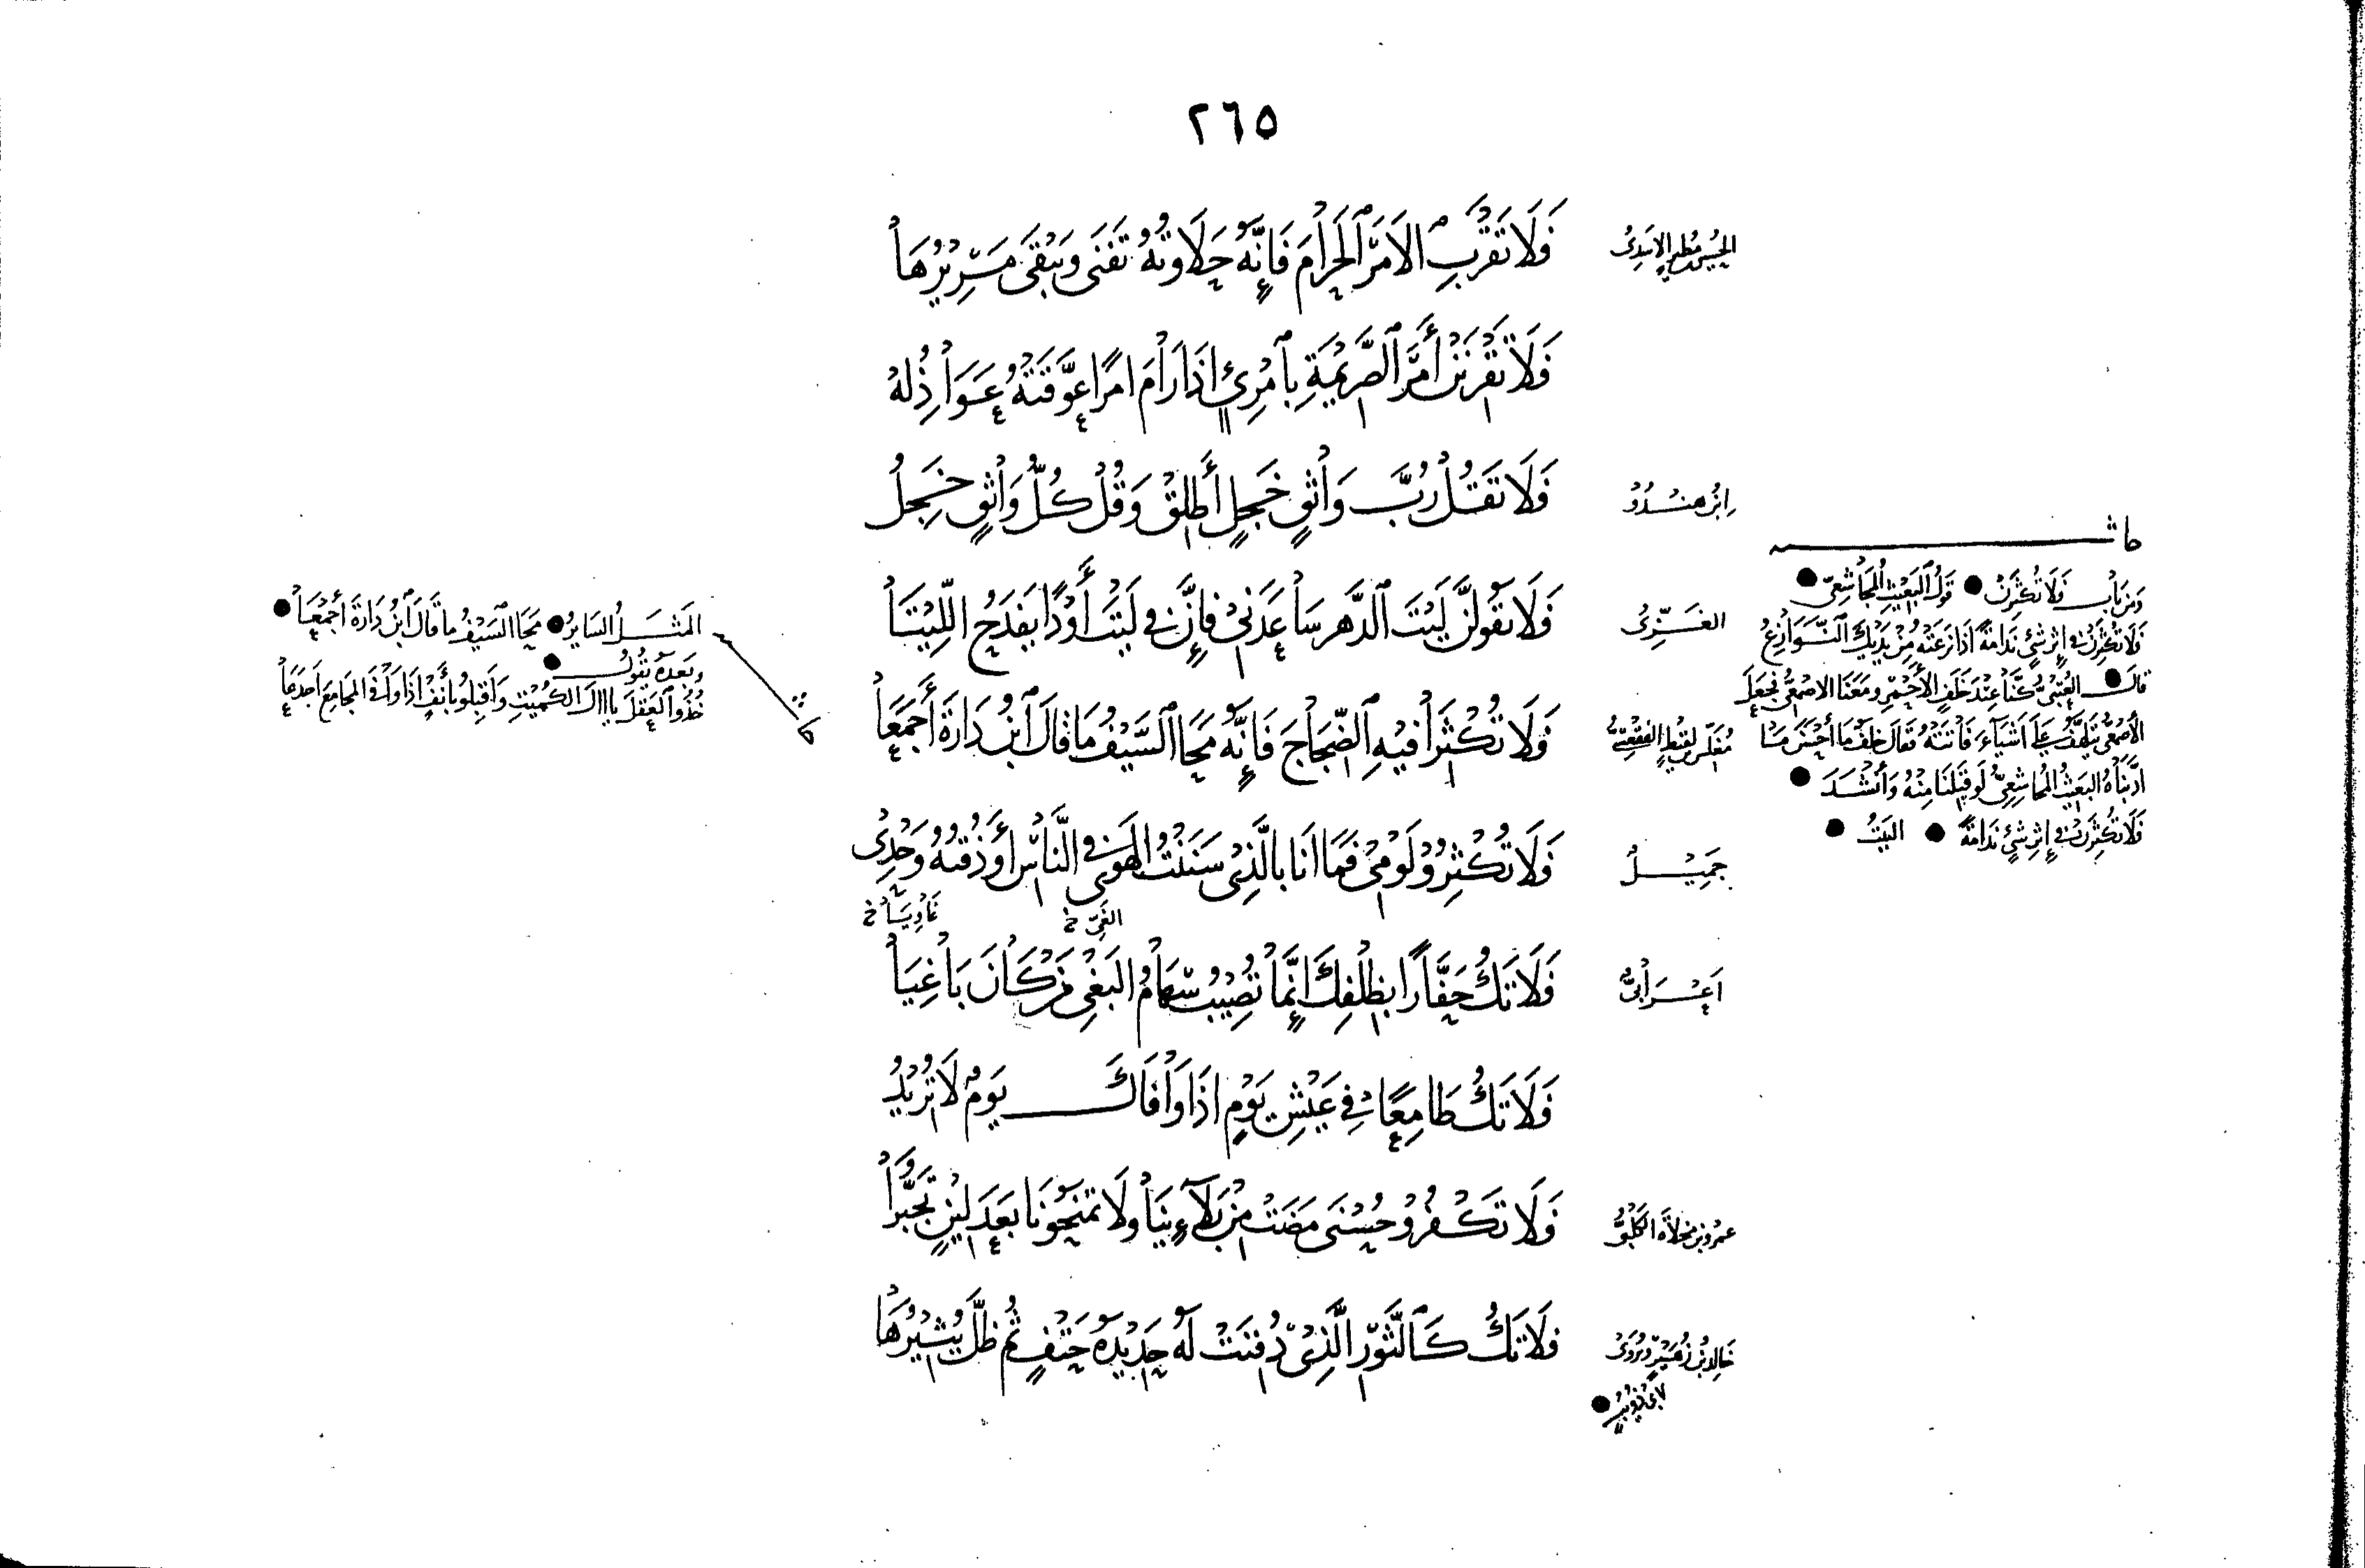 ٢٦٥
الحسين بن مطير الاسدي
فَلَا تَقْرَبِ الأَمْرَ الحَرَامَ فَإِنَّهُ حَلَاوَتُهُ تَفْنَى وَيَبْقَى مَرِيْرُهَا
فَلَا تَقْرِنَنْ أَمْرَ الصَّرِيْمَةِ بِامْرِئٍ إِذَا رَامَ امْرًا عَوَّقَتْهُ عَوَاذِلُهْ
ابن هندو
فَلَا تَقُلْ رُبَّ وَاثِقٍ خَجِلٍ أَطْلِقْ وَقُلْ كُلُّ وَاثِقٍ خَجِلُ
الغزي
فَلَا تَقُولَنَّ لَيْتَ الدَّهْرَ سَاعَدَنِي فَإِنَّ فِي لَيْتَ أَوْدًا يَفْدَحُ اللِّيْتَا
مغلس بن لقيط الفقعسي
فَلَا تُكْثِرَا فِيهِ الضِّجَاجَ فَإِنَّهُ مَحَا السَّيْفُ مَا قَالَ ابْنُ دَارَةَ أَجْمَعَا
جميل
فَلَا تُكْثِرُوا لَوْمِي فَمَا أَنَا بِالَّذِي سَنَنْتُ الهَوَى فِي النَّاسِ أَوْ ذُقْتُهُ وَحْدِي
الغي خ
عاديا خ
اعرابي
فَلَا تَكُ حَفَّارًا بِظِلْفِكَ إِنَّمَا تُصِيْبُ سِهَامُ البَغْيِ مَنْ كَانَ بَاغِيَا
فَلَا تَكُ طَامِعًا فِي عَيْشِ يَوْمٍ إِذَا وَافَاكَ يَوْمٌ لَا تُرِيْدُ
عمرو بن مخلاة الكلبي
فَلَا تَكْفُرُوا حُسْنَى مَضَتْ مِنْ بَلَاءِنَا وَلَا تَمْنَحُونَا بَعْدَ لِيْنٍ تَجَبُّرَا
خالد بن زهير ويروى
لابي ذؤيب
فَلَا تَكُ كَالثَّوْرِ الَّذِي دُفِنَتْ لَهُ حَدِيْدَةُ حَتْفٍ ثُمَّ ظَلَّ يُثِيْرُهَا
حاشـ
ومن باب فلا تكثرن قول البعيث المجاشعي
فلا تكثرن في إثر شيء ندامة اذا نزعته من يديك النوازع
قال العتبي كنا عند خلف الأحمر ومعنا الاصمعي فجعل
الأصمعي يتلهف على اشياء فاتته فقال خلف ما أحسن ما
ادبناه البعيث المجاشعي لو قبلنا منه وأنشد
فلا تكثرن في إثر شيء ندامة البيت
المثل السائر محا السيف ما قال ابن دارة أجمعا
وبعده يقول
خذوا العقل يا ال الكميت وأقبلوا بأنف اذا وافى المجامع اجدعا